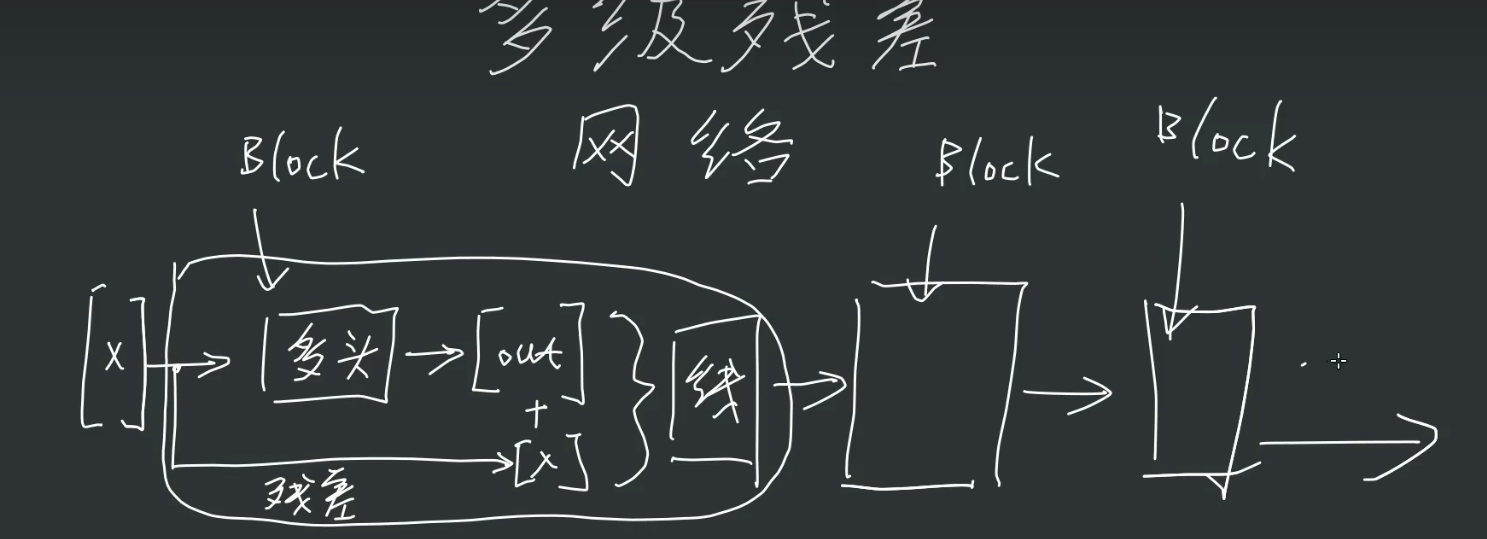 多级残差
网络
Block
Block
Block
[X]
多头
[out]
+
[X]
线
残差